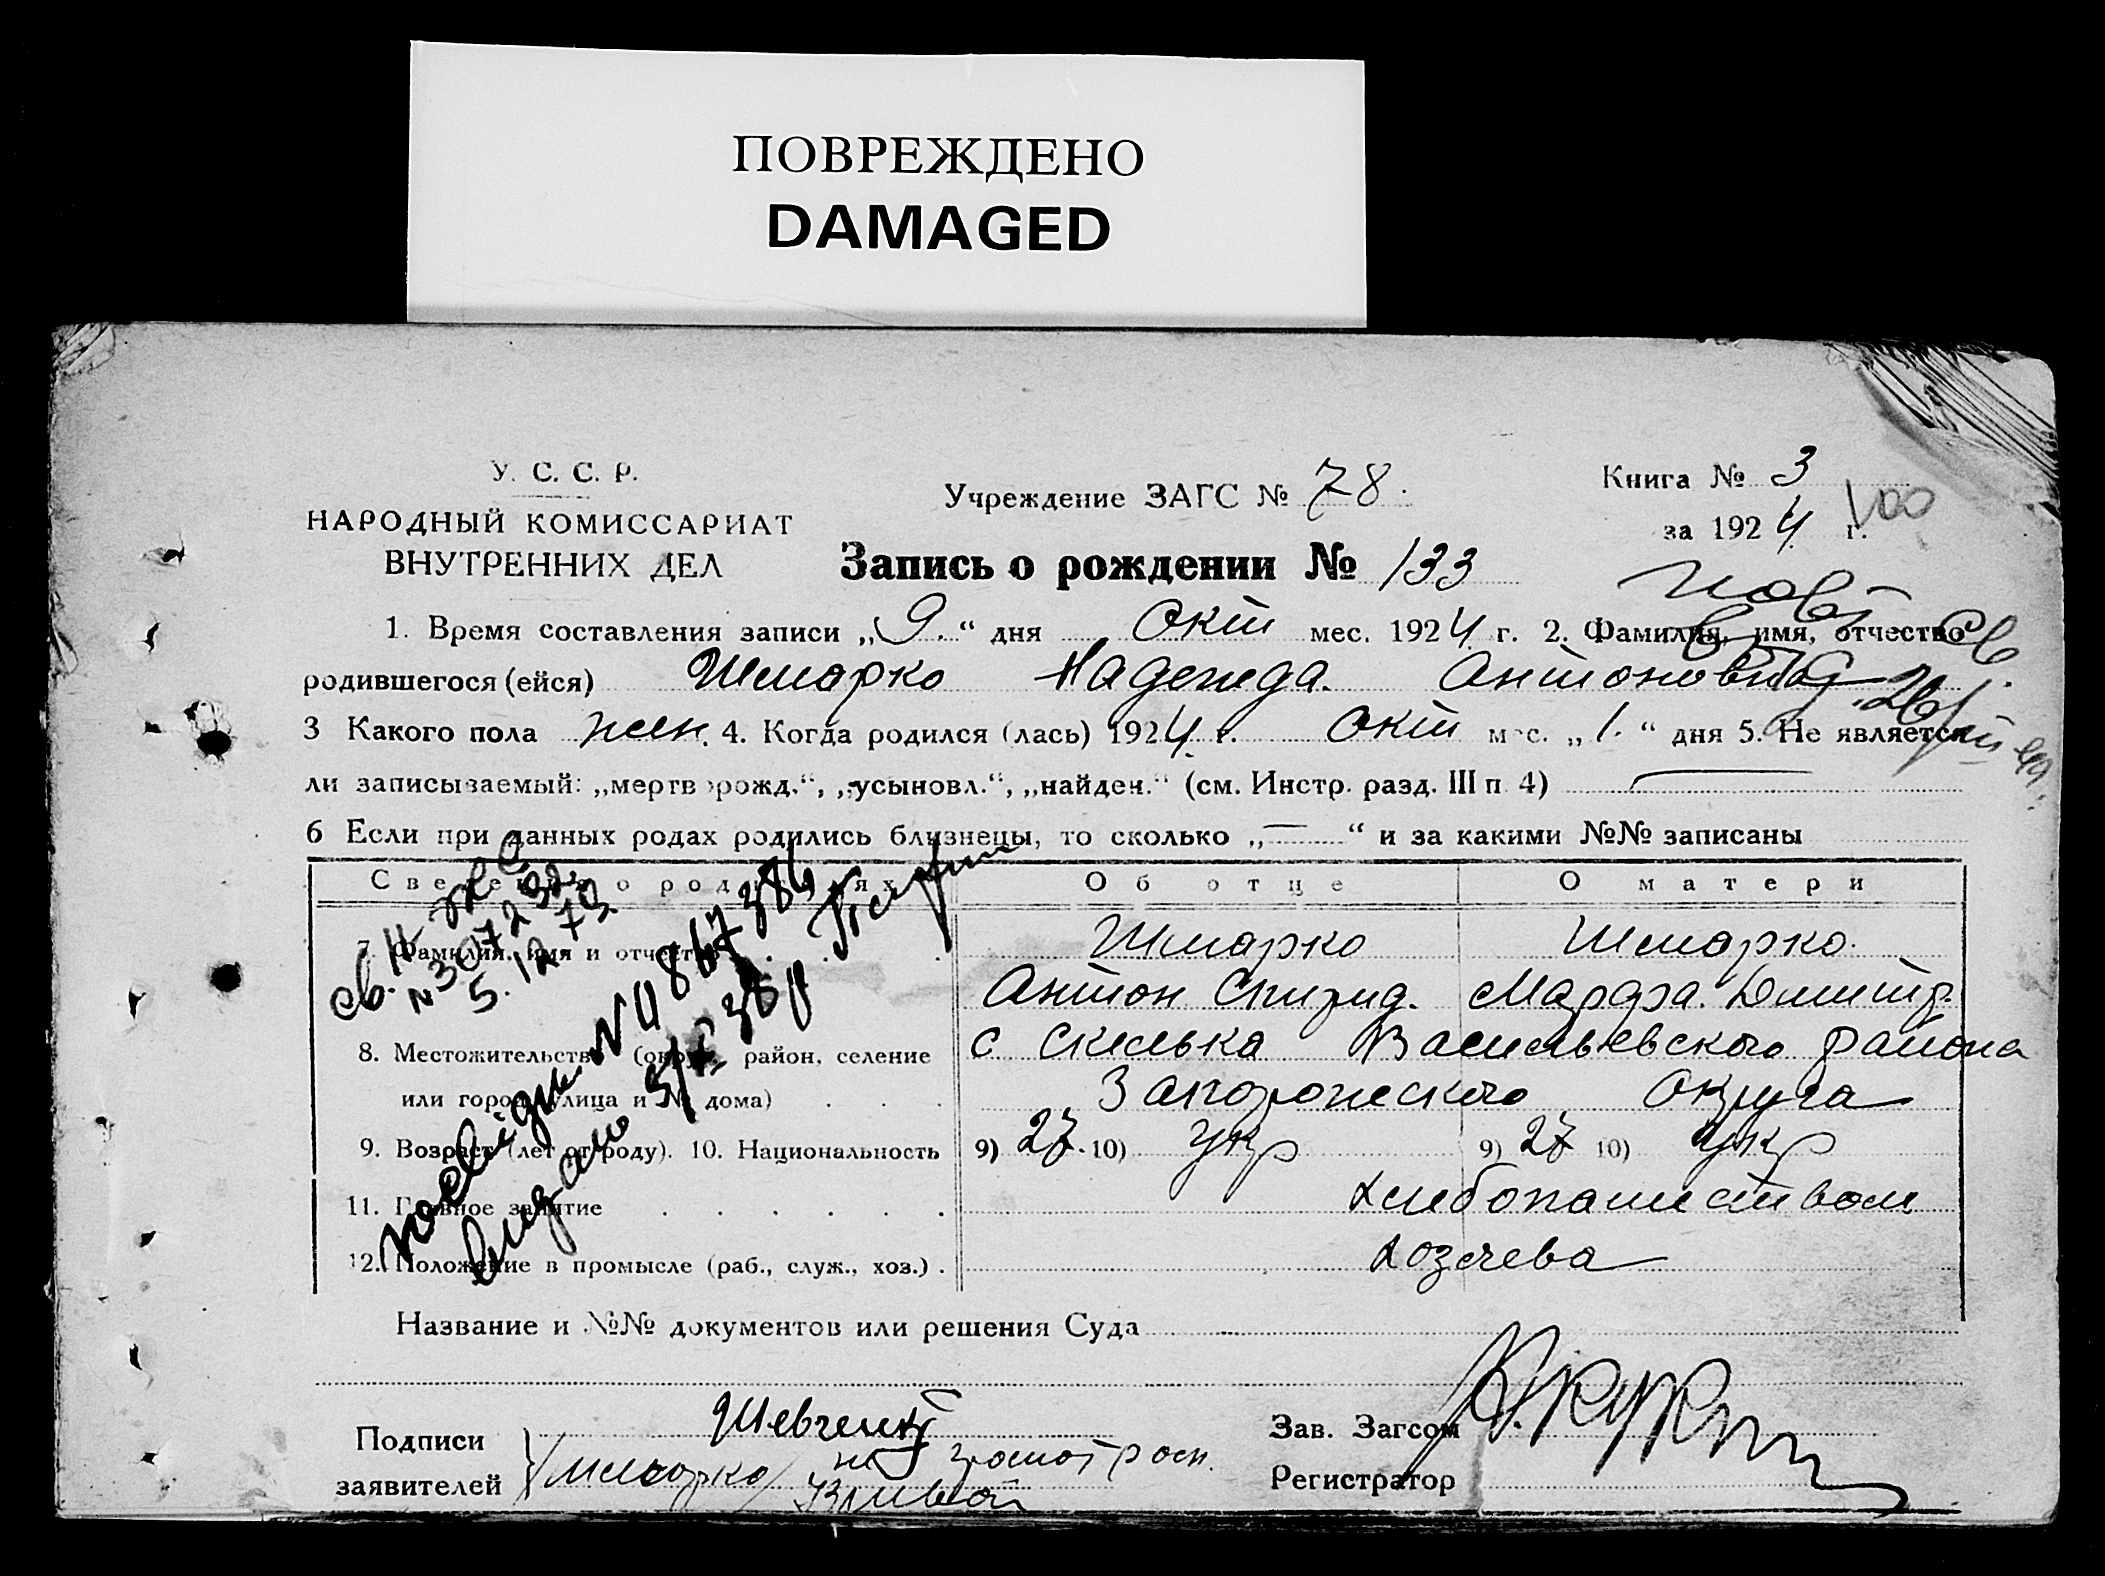 ПОВРЕЖДЕНО
DAMAGED
У. С. С. Р.
НАРОДНЫЙ КОМИССАРИАТ
ВНУТРЕННИХ ДЕЛ
Учреждение ЗАГС № 78.
Книга № 3
за 1924 г. 100
Запись о рождении № 133
1. Время составления записи „9." дня Окт мес. 1924 г. 2. Фамилия, имя, отчество
родившегося (ейся) Шмарко Надежда Антоновна
3 Какого пола жен. 4. Когда родился (лась) 1924 г. Окт мес. „1." дня 5. Не является
ли записываемый: „мертворожд.", „усыновл.", „найден." (см. Инстр. разд. III п 4)
6 Если при данных родах родились близнецы, то сколько „—" и за какими №№ записаны
Сведения о родителях Об отце О матери
7. Фамилия, имя и отчество Шмарко Шмарко
Антон Спирид. Марфа Дмитр.
8. Местожительство (округ, район, селение с Скелька Васильевского района
или город, улица и № дома) Запорожского Округа
9. Возраст (лет от роду). 10. Национальность 9) 27. 10) укр 9) 27 10) укр
11. Главное занятие хлебопашеством
12. Положение в промысле (раб., служ., хоз.)
св.
№ 307232
5.12 73
N 4867384
Видано
Название и №№ документов или решения Суда
Подписи
заявителей
Шевченко
Шмарко
Зав. Загсом
Регистратор